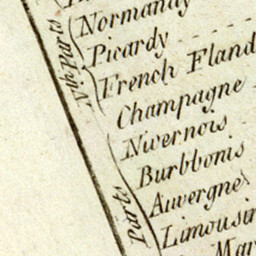 Normandy
Picardy
French Fland
Champagne
Nivernois
Burbbonis
Auvergne
Limousin
Mar
Nth Parts
Parts